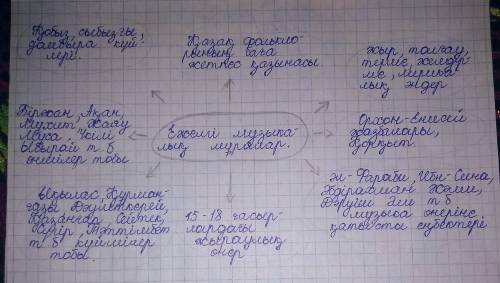 Қобыз, сыбызғы,
домбыра күй-
лері.
Қазақ фолькло-
рының баға
жетпес қазынасы
жыр, толғау,
терме, желдір-
ме, лирика-
лық әндер
Біржан, Ақан,
Мұхит, Жаяу
Мұса, Үкілі
Ыбырай т.б
әншілер тобы
Ежелгі музыка-
лық мұралар.
Орхон-Енисей
жазбалары,
Қорқыт.
Ықылас, Құрман-
ғазы Дәулеткерей,
Қазанғап Сейтек,
Түркеш, Тәттімбет
т.б күйшілер
тобы.
15-18 ғасыр-
лардағы
жыраулық
өнер
әл-Фараби, Ибн-Сина,
Әбдірахман Жәми,
Дәруіш Әли т.б
музыка өнеріне
қатысты еңбектері